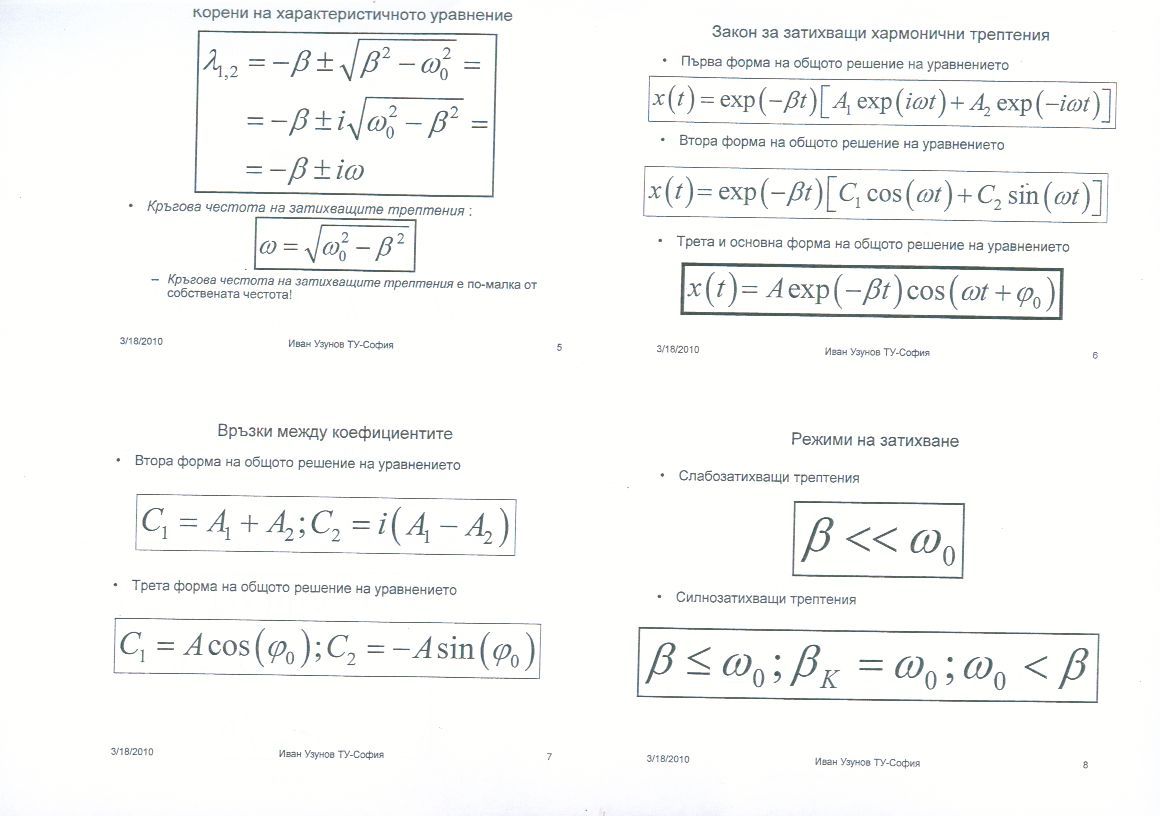 Корени на характеристичното уравнение
λ₁,₂ = −β ± √(β² − ω₀²) =
= −β ± i√(ω₀² − β²) =
= −β ± iω
• Кръгова честота на затихващите трептения :
ω = √(ω₀² − β²)
– Кръгова честота на затихващите трептения е по-малка от
собствената честота!
3/18/2010 Иван Узунов ТУ-София 5
Закон за затихващи хармонични трептения
• Първа форма на общото решение на уравнението
x(t) = exp(−βt)[A₁ exp(iωt) + A₂ exp(−iωt)]
• Втора форма на общото решение на уравнението
x(t) = exp(−βt)[C₁ cos(ωt) + C₂ sin(ωt)]
• Трета и основна форма на общото решение на уравнението
x(t) = A exp(−βt) cos(ωt + φ₀)
3/18/2010 Иван Узунов ТУ-София 6
Връзки между коефициентите
• Втора форма на общото решение на уравнението
C₁ = A₁ + A₂; C₂ = i(A₁ − A₂)
• Трета форма на общото решение на уравнението
C₁ = A cos(φ₀); C₂ = −A sin(φ₀)
3/18/2010 Иван Узунов ТУ-София 7
Режими на затихване
• Слабозатихващи трептения
β << ω₀
• Силнозатихващи трептения
β ≤ ω₀; β_K = ω₀; ω₀ < β
3/18/2010 Иван Узунов ТУ-София 8